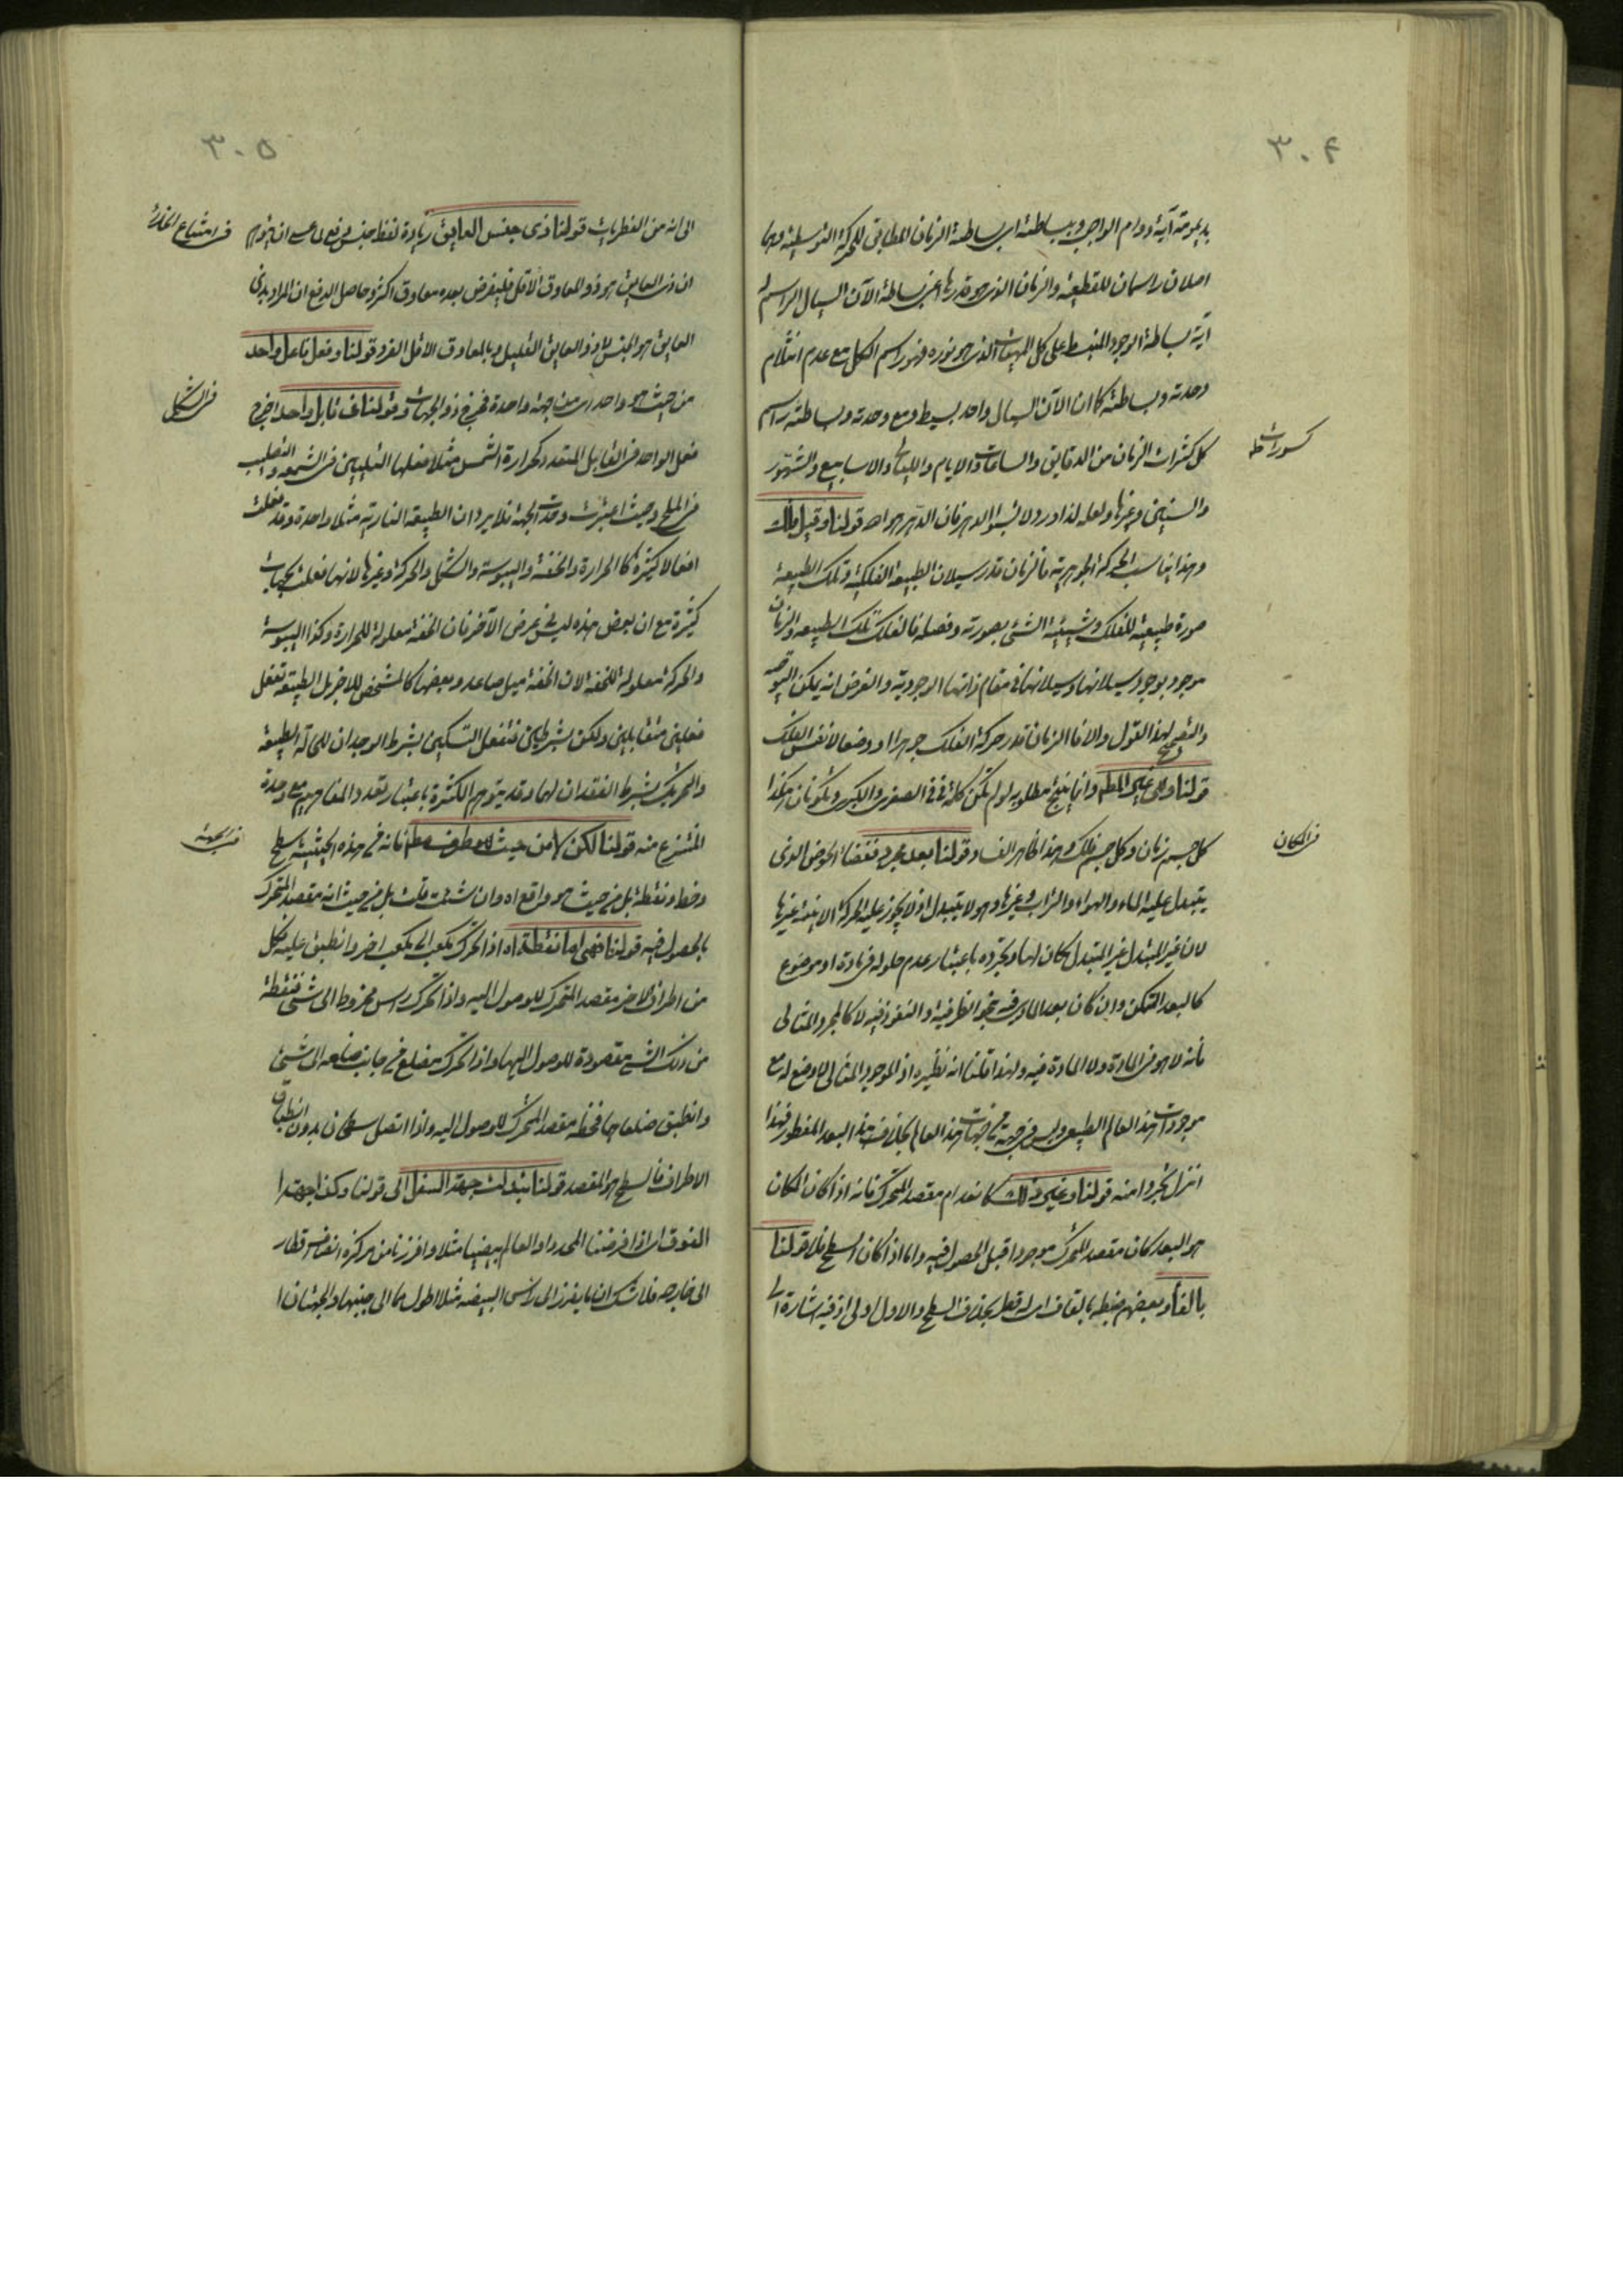 ٣٠٤
بديمومته آية دوام الواجب وبساطته اى بساطة الزمان المطابق للحركة التوسطية وهما
اصلان راسمان للقطعية والزمان الذى هو قدرها اعنى بساطة الآن السيال الراسم
آية بساطة الوجود المنبسط على كل المهيات الذى هو نوره فهو راسم الكل مع عدم انثلام
وحدته وبساطته كما ان الآن السيال واحد بسيط ومع وحدته وبساطته راسم
كل كثرات الزمان من الدقايق والساعات والايام والليالى والاسابيع والشهور
كسورات ظ
والسنين وغيرها ولعله لذا ورد لا تسبوا الدهر فان الدهر هو الله قولنا وقيل فلك
وهذا يناسب الحركة الجوهرية فالزمان قدر سيلان الطبيعة الفلكية وتلك الطبيعة
صورة طبيعية للفلك وشيئية الشئ بصورته وفصله فالفلك تلك الطبيعة والزمان
موجود بوجود سيلانها وسيلانها فى مقام ذاتها الوجودية والغرض انه يمكن التوجيه
والتصحيح لهذا القول والا فالزمان قدر حركة الفلك جوهرا او وضعا لا نفس الفلك
قولنا وهى غير المط وانما ينتج مطلوبه لو لم تكن كلمة فى فى الصغرى والكبرى وتكونان هكذا
كل جسم زمان وكل جسم فلك وهذا ظاهر الفساد قولنا بعد مجرد ففضاء الحوض الذى
فى المكان
يتبدل عليه الماء والهواء والتراب وغيرها وهو لا يتبدل اذ لا يجوز عليه الحركة الاينية وغيرها
لان غير المتبدل غير المتبدل مكان لها وتجرده باعتبار عدم حلوله فى مادة او موضوع
كالبعد المتمكن وان كان بعد المادى فيه بنحو الظرفية والنفوذ فيه لا كالمجرد المثالى
فانه لا هو فى المادة ولا المادة فيه ولهذا قلنا انه نظيره اذ الموجود المثالى لا وضع له مع
موجودات هذا العالم الطبيعى وليس فى جهة من جهات هذا العالم بخلاف هذا البعد المفطور فهذا
انزل تجردا منه قولنا وغير ذلك كانعدام مقصد المتحرك فانه اذا كان المكان
هو البعد كان مقصد المتحرك موجودا قبل الحصول فيه واما اذا كان السطح فلا قولنا
بالفاء وبعضهم ضبطه بالقاف اى له قطر بخلاف السطح والاول اولى اذ فيه اشارة
٣٠٥
الى انه من الفطريات قولنا ذى جنس العايق زيادة لفظ جنس دفع لما عسى ان يتوهم
فى امتناع الخلاء
ان ذى العايق هو ذو المعاوق الاقل فليفرض بعده معاوق اكثر وحاصل الدفع ان المراد بذى
العايق هو الجنس لا ذو العايق القليل وبالمعاوق الاقل الفرد قولنا وفعل فاعل واحد
من حيث هو واحد اى من جهة واحدة فخرج ذو الجهات وقولنا فى قابل واحد اخرج
فى الشكل
فعل الواحد فى القابل المتعدد كحرارة الشمس مثلا فعلها التليين فى الشمعة والتصليب
فى الملح وحيث اعتبرت وحدة الجهة فلا يرد ان الطبيعة النارية مثلا واحدة وقد فعلت
افعالا كثيرة كالحرارة والخفة واليبوسة والشكل والحركة وغيرها لانها فعلت بجهات
كثيرة مع ان بعض هذه ليس فى عرض الآخر فان الخفة معلولة للحرارة وكذا اليبوسة
والحركة معلولة للخفة لان الخفة ميل صاعد وبعضها كالمشخص للاخر بل الطبيعة تفعل
فعلين متقابلين ولكن بشرطين فتفعل التسكين بشرط الوجدان للحالة الطبيعية
والتحريك بشرط الفقدان لها وقد يتوهم الكثرة باعتبار تعدد المفاهيم مع وحدة
المنتزع منه قولنا لكن لا من حيث هو طرف فقط فانه فى هذه الحيثية سطح
فى الجهة
وخط ونقطة بل من حيث هو واقع اه وان شئت قلت بل من حيث انه مقصد المتحرك
بالحصول فيه قولنا فهى اما نقطة اه اذا تحرك مكعب الى مكعب اخر وانطبق عليه فكل
من اطراف الاخر مقصد المتحرك للوصول اليه واذا تحرك راس مخروط الى شئ فنقطة
من ذلك الشئ مقصودة للوصول اليها واذا تحرك مضلع من جانب ضلعه الى شئ
وانطبق ضلعاهما فخطه مقصد المتحرك للوصول اليه واذا اتصل سطحان بدون انطباق
الاطراف فالسطح هو المقصد قولنا تبدلت جهة السفل الى قولنا وكذا جهة
الفوق اى اذا فرضنا المحدد او العالم بيضيا مثلا وافرزنا من مركزه انصاف اقطار
الى خارجه فلا شك ان ما يفرز الى راس البيضة مثلا اطول مما الى جنبها والجهتان